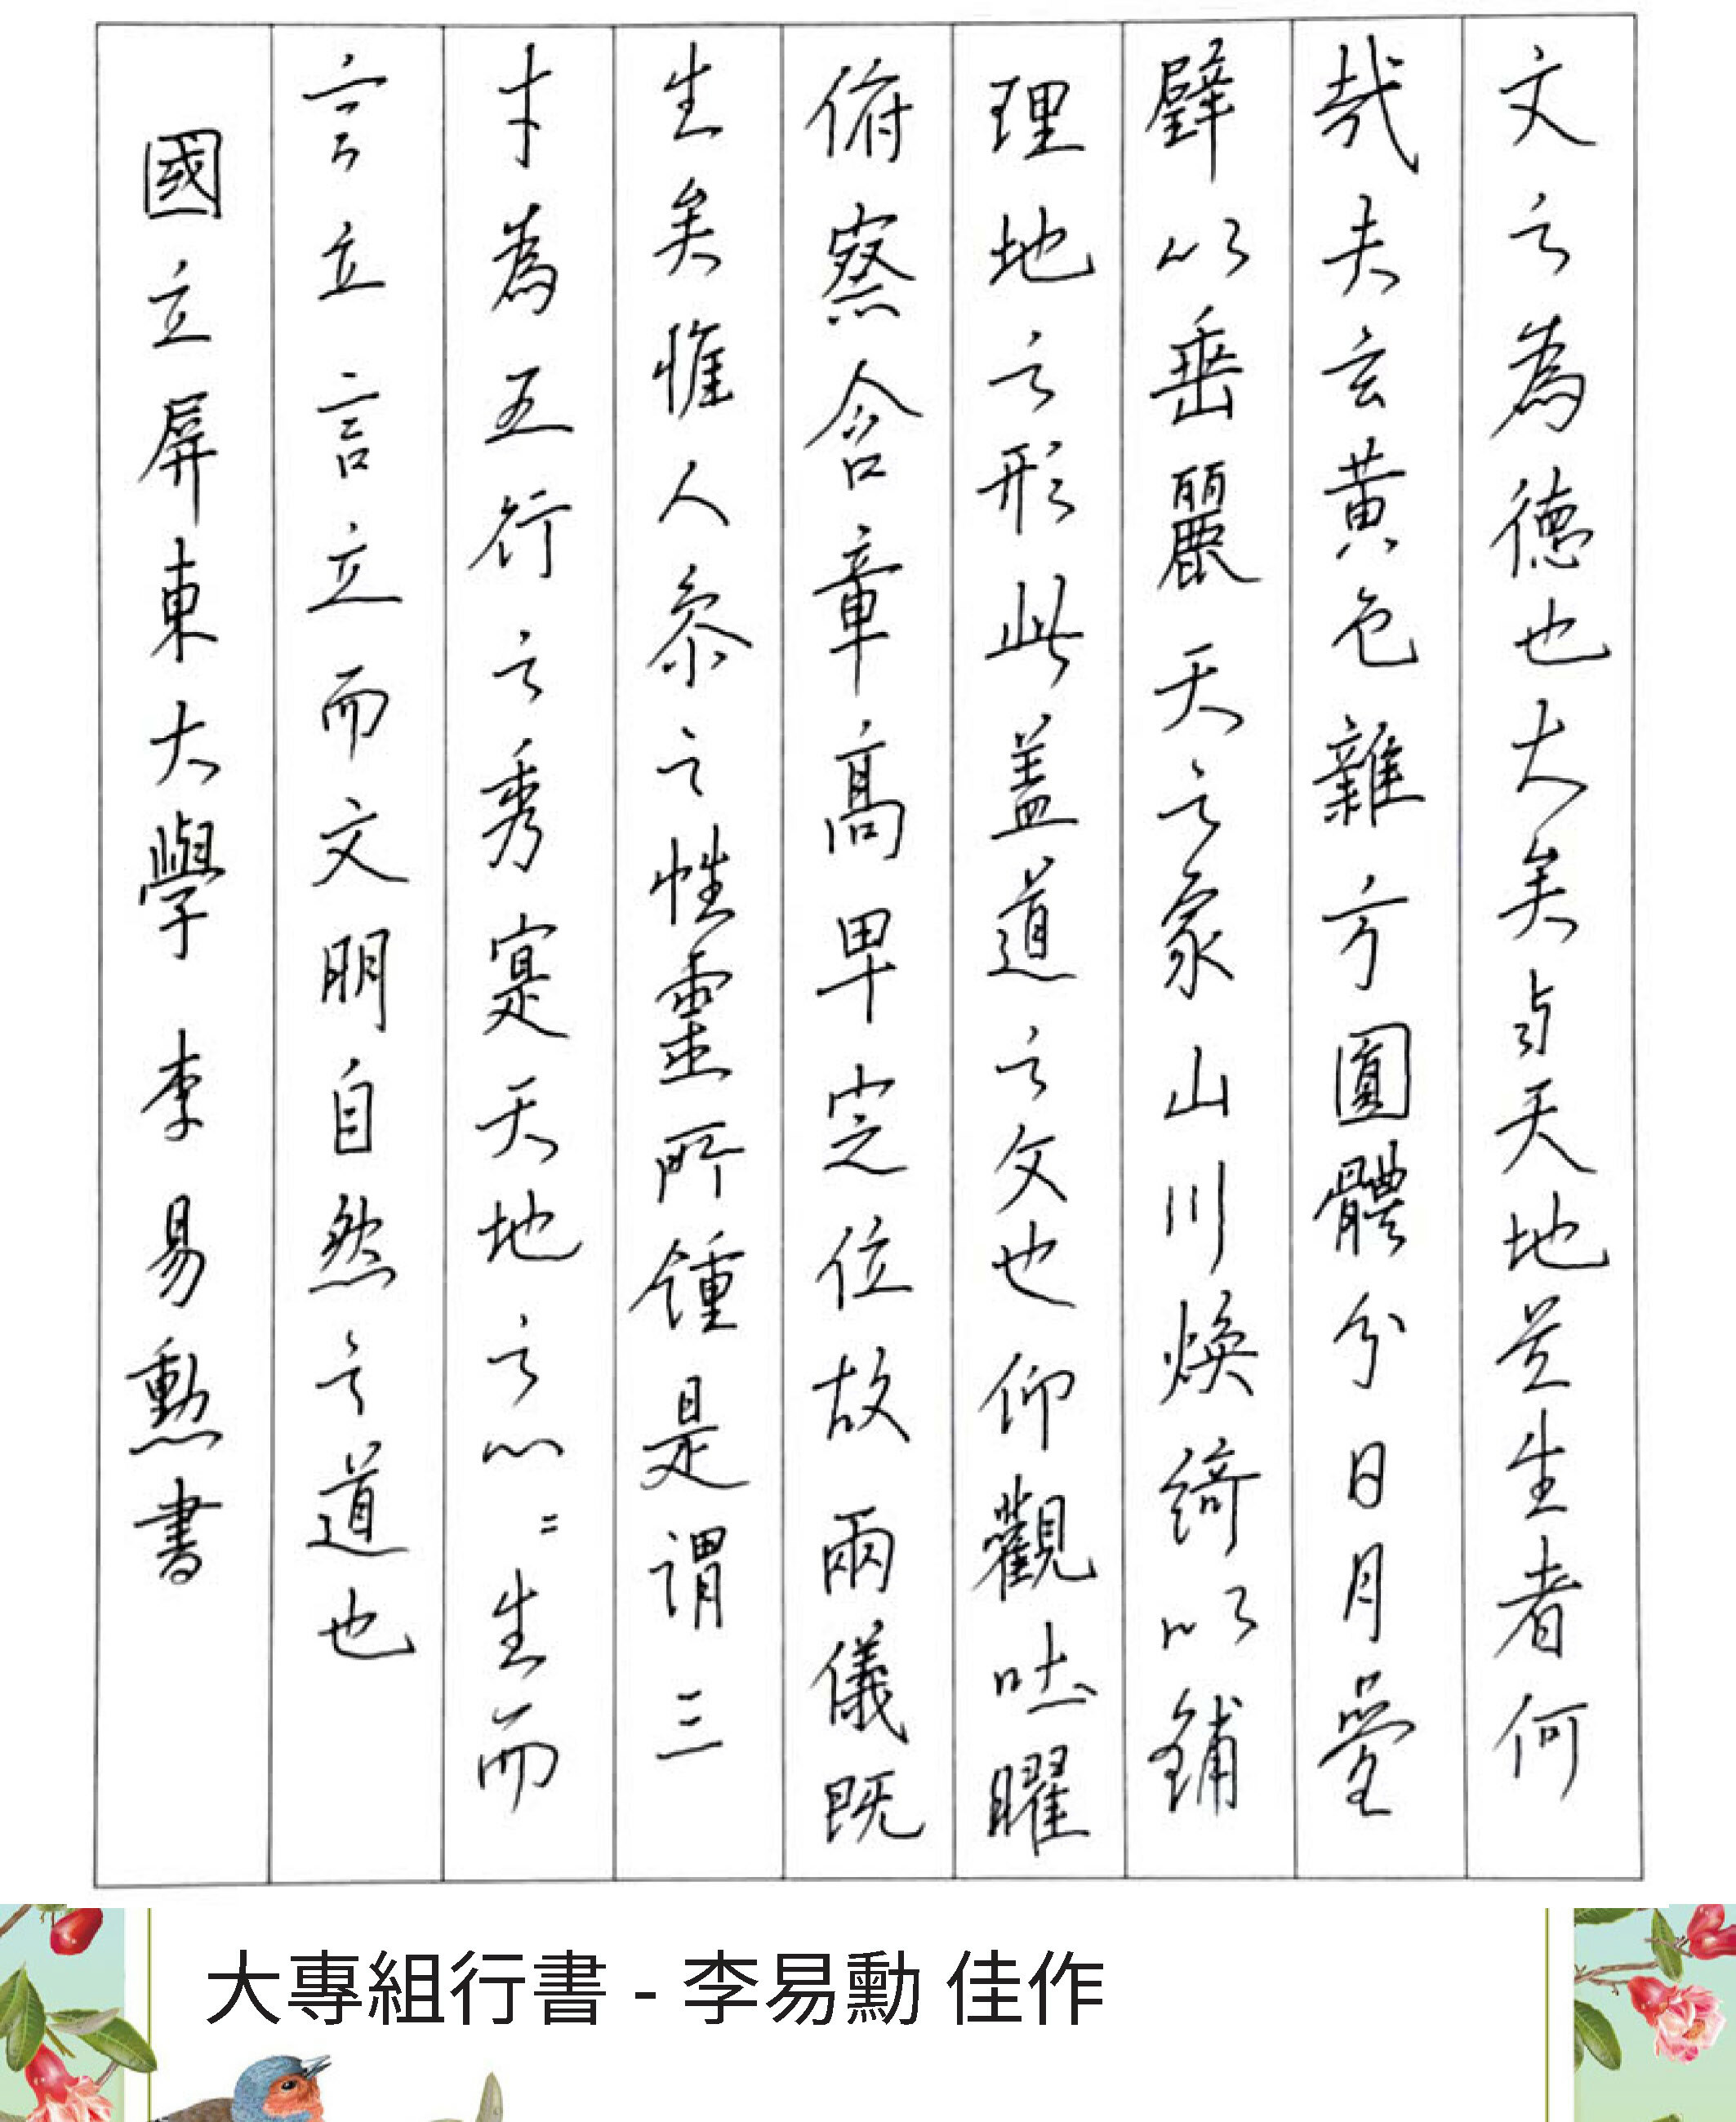 文之為德也大矣與天地並生者何
哉夫玄黃色雜方圓體分日月疊
璧以垂麗天之象山川煥綺以鋪
理地之形此蓋道之文也仰觀吐曜
俯察含章高卑定位故兩儀既
生矣惟人參之性靈所鍾是謂三
才為五行之秀寔天地之心〻生而
言立言立而文明自然之道也
國立屏東大學 李易勳書
大專組行書 - 李易勳 佳作